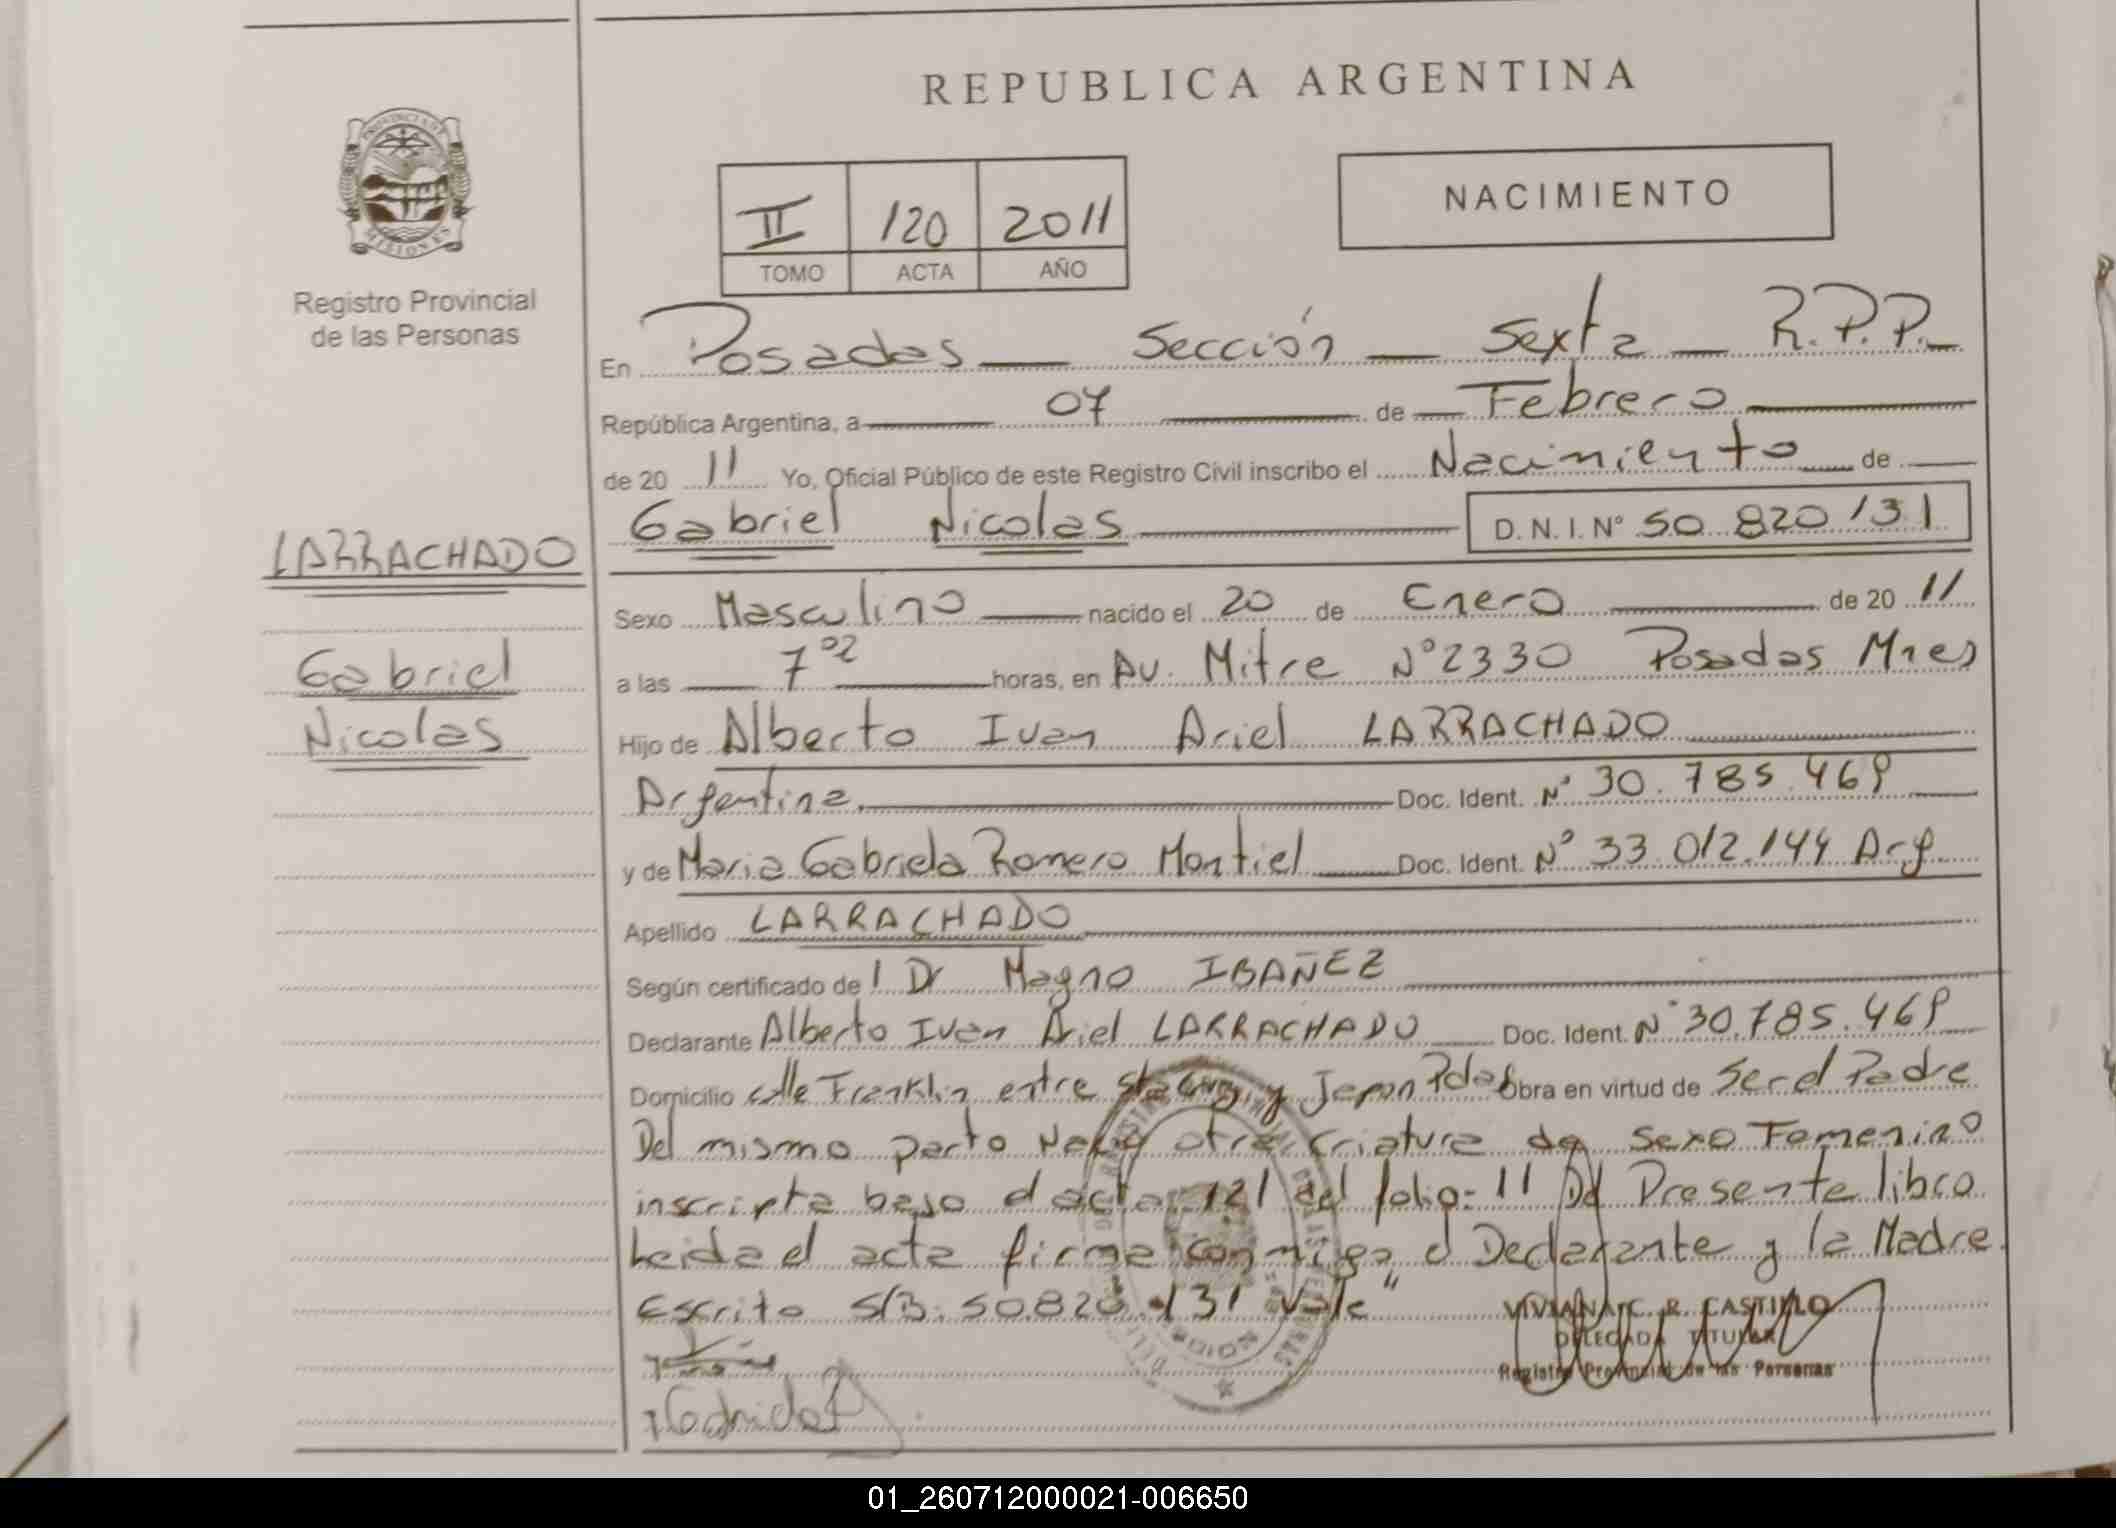 REPUBLICA ARGENTINA
PROVINCIA DE MISIONES
Registro Provincial
de las Personas
II 120 2011
TOMO ACTA AÑO
NACIMIENTO
En Posadas Sección Sexta R.P.P.
República Argentina, a 07 de Febrero
de 20 11 Yo, Oficial Público de este Registro Civil inscribo el Nacimiento de
Gabriel Nicolas D. N. I. Nº 50 820 131
LARRACHADO
Gabriel
Nicolas
Sexo Masculino nacido el 20 de Enero de 20 11
a las 7 02 horas, en Av. Mitre Nº 2330 Posadas Mnes
Hijo de Alberto Ivan Ariel LARRACHADO
Argentina Doc. Ident. Nº 30.785.469
y de Maria Gabriela Romero Montiel Doc. Ident. Nº 33.012.144 Arg
Apellido LARRACHADO
Según certificado de l Dr Magno IBAÑEZ
Declarante Alberto Ivan Ariel LARRACHADO Doc. Ident. Nº 30.785.469
Domicilio calle Franklin entre y Japon Pdas Obra en virtud de Ser el Padre
Del mismo parto Nacio otra criatura de sexo Femenino
inscripta bajo el acta 121 del folio: 11 Del Presente libro
Leida el acta firma conmigo el Declarante y la Madre.
Escrito S/B: 50.820.131 Vale"
VIVIANA C. R. CASTILLO
DELEGADA TITULAR
Registro Provincial de las Personas
01_260712000021-006650